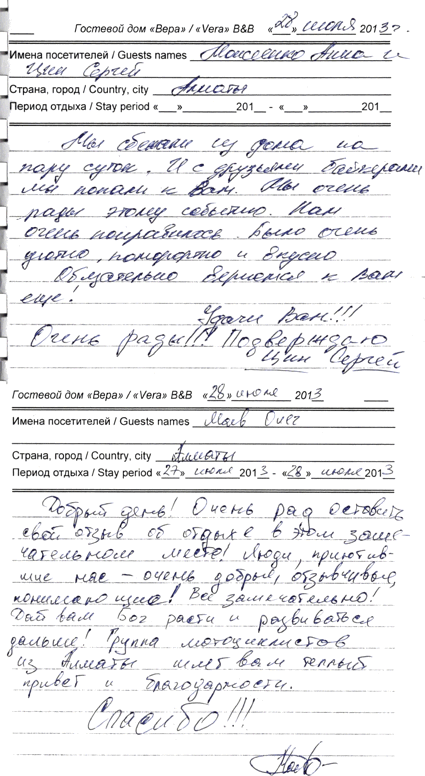 Гостевой дом «Вера» / «Vera» B&B «28» июля 2013 г.
Имена посетителей / Guests names Моисеенко Анна и
Цин Сергей
Страна, город / Country, city Алматы
Период отдыха / Stay period «___»________201__ - «___»________201__
Мы сбежали из дома на
пару суток. И с друзьями байкерами
мы попали к Вам. Мы очень
рады этому событию. Нам
очень понравилось. Было очень
уютно, комфортно и вкусно
Обязательно вернемся к Вам
еще!
Удачи Вам!!!
Очень рады!!! Подверждаю
Цин Сергей
Гостевой дом «Вера» / «Vera» B&B «28» июля 2013
Имена посетителей / Guests names Олег
Страна, город / Country, city Алматы
Период отдыха / Stay period «27» июля 2013 - «28» июля 2013
Добрый день! Очень рад оставить
свой отзыв об отдыхе в этом заме-
чательном месте! Люди, приютив-
шие нас – очень добрые, отзывчивые,
понимающие! Все замечательно!
Дай вам Бог расти и развиваться
дальше! Группа мотоциклистов
из Алматы шлет вам теплый
привет и благодарности.
Спасибо!!!